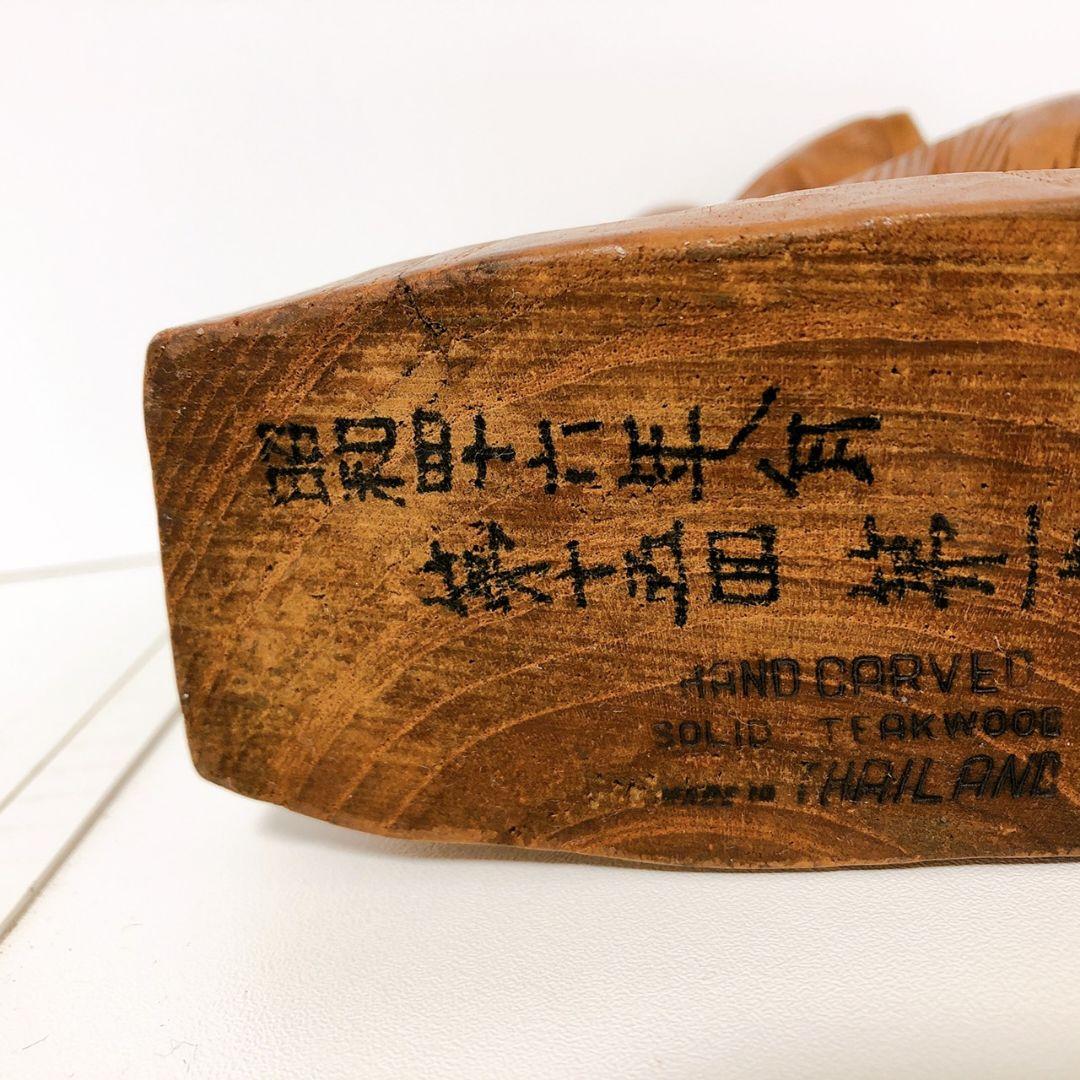 昭和四十六年八月
第十五回 第一
HAND CARVED
SOLID TEAKWOOD
MADE IN THAILAND